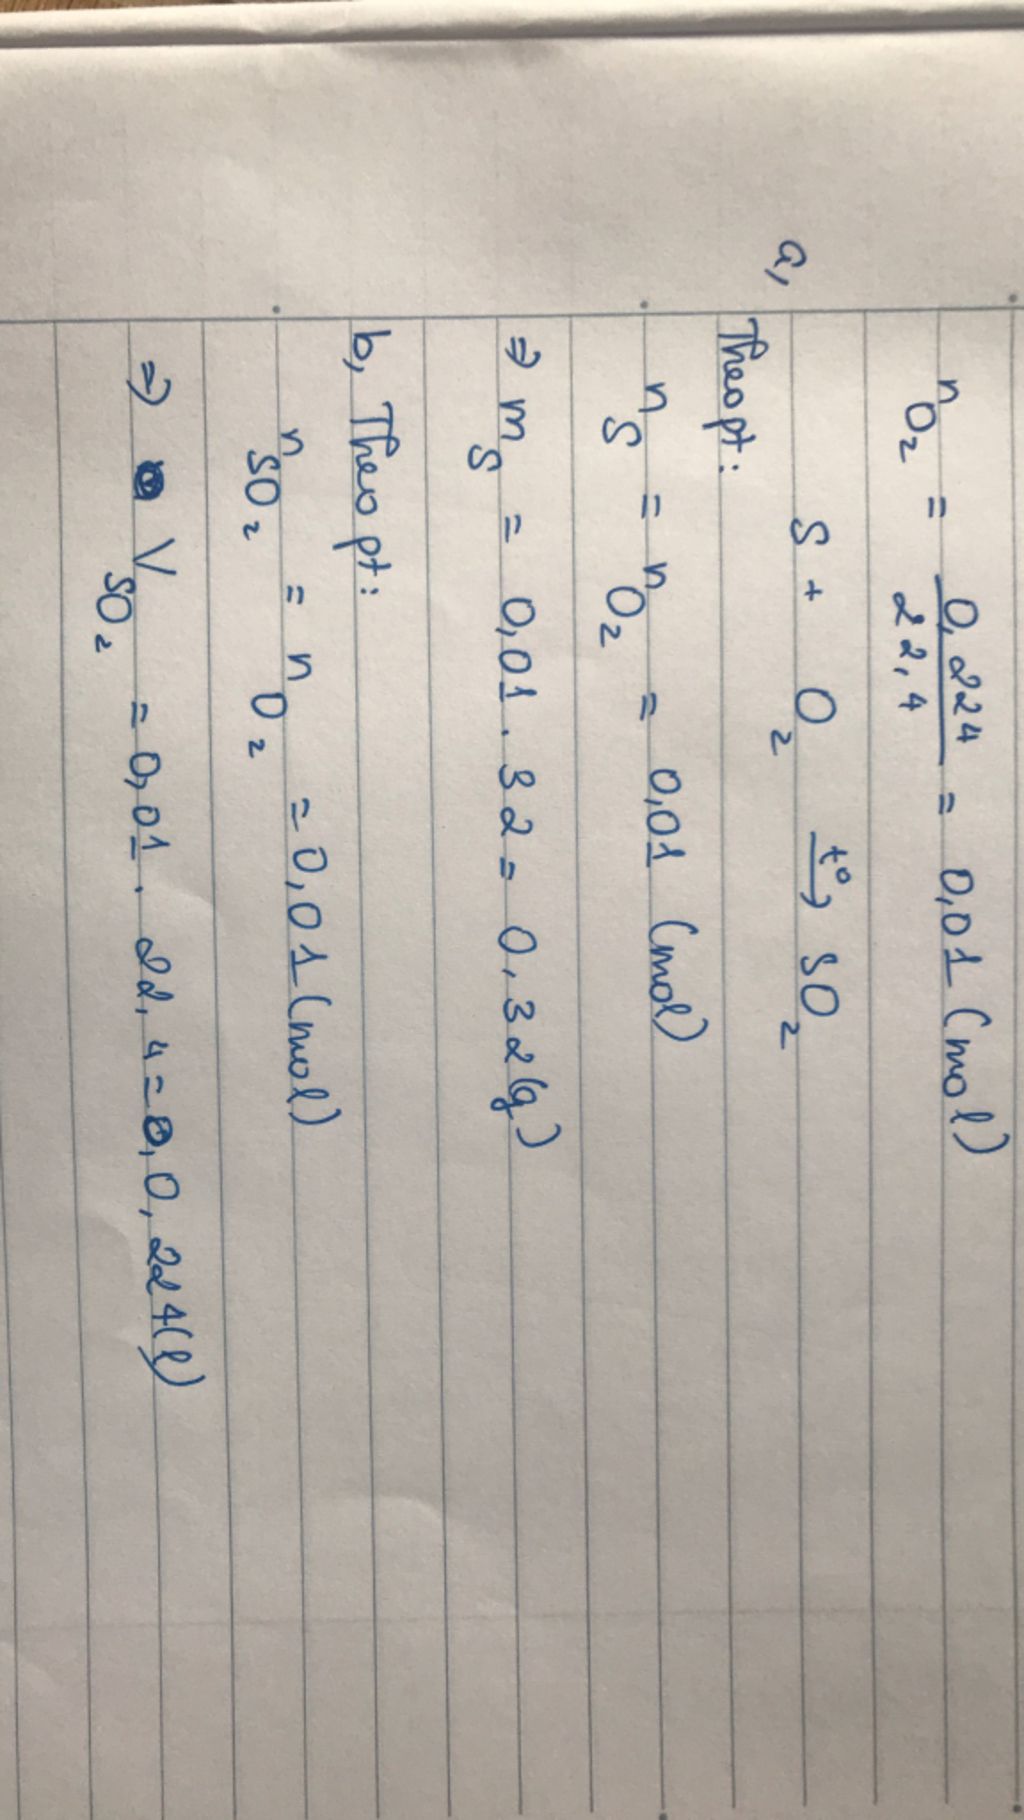 n O₂ = 0,224 / 22,4 = 0,01 (mol)
a, S + O₂ t° → SO₂
Theo pt:
n S = n O₂ = 0,01 (mol)
⇒ m S = 0,01 . 32 = 0,32 (g)
b, Theo pt:
n SO₂ = n O₂ = 0,01 (mol)
⇒ V SO₂ = 0,01 . 22,4 = 0,224 (l)